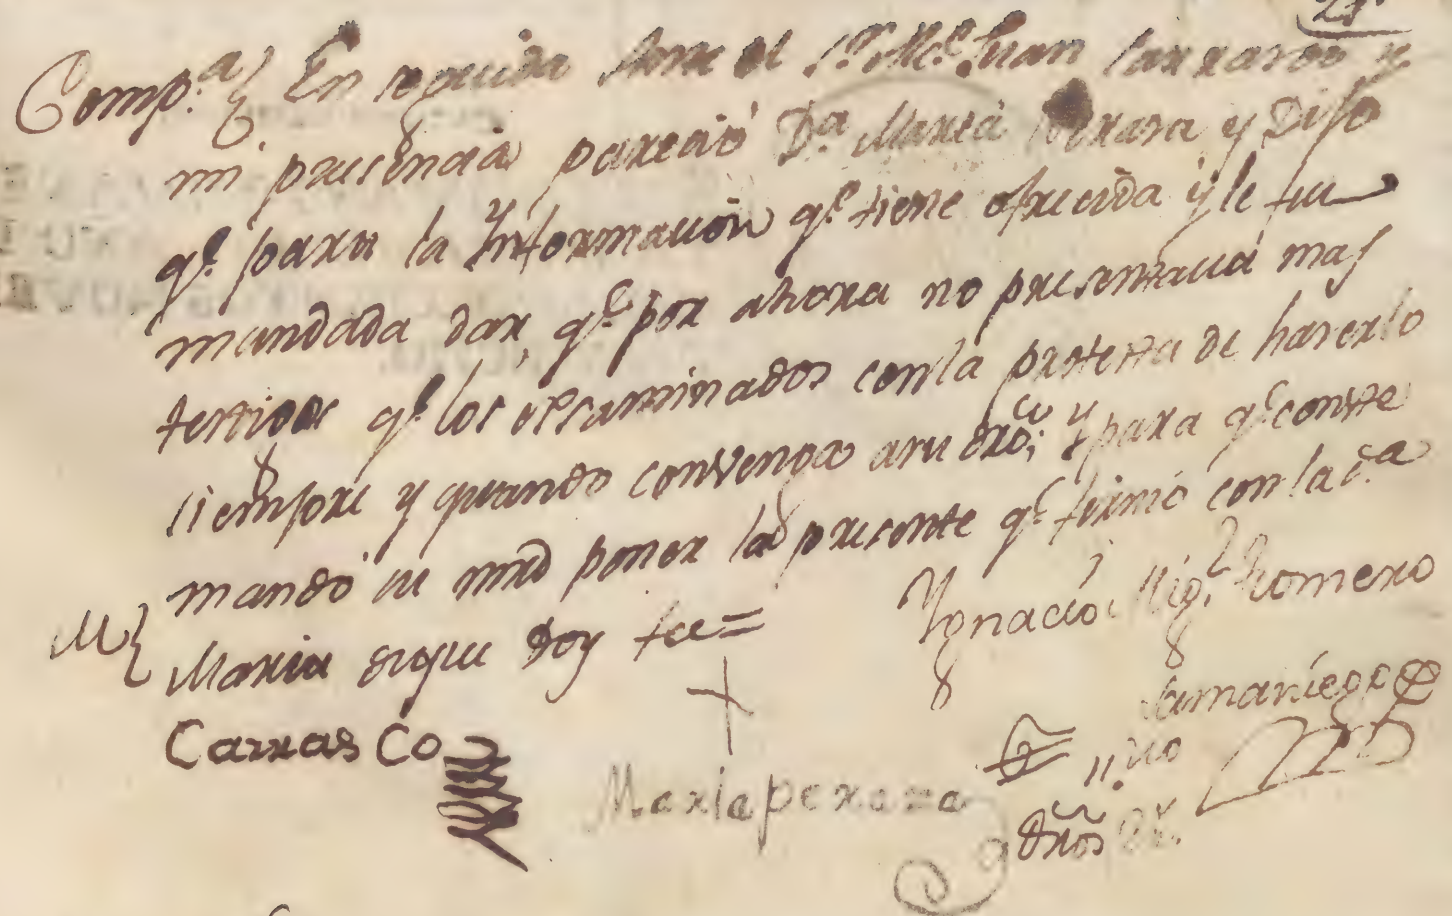 21
Comp.ª En seguida Ante el S.r Alc.e Juan Carrasco y
mi presencia parecio D.ª Maria Perara y Dijo
q.e para la Informacion q.e tiene ofrecida y le fue
mandada dar, q.e por ahora no presentava mas
testigos q.e los essaminados con la protesta de haserlo
siempre y quando convenga a su dro; y para q.e conste
mandó su mrd poner la presente q.e firmó con la d.ª
Maria deque Doy fee=
Ygnacio Mig.l Romero
Samaniego
Carras Co
Maria perara
dros